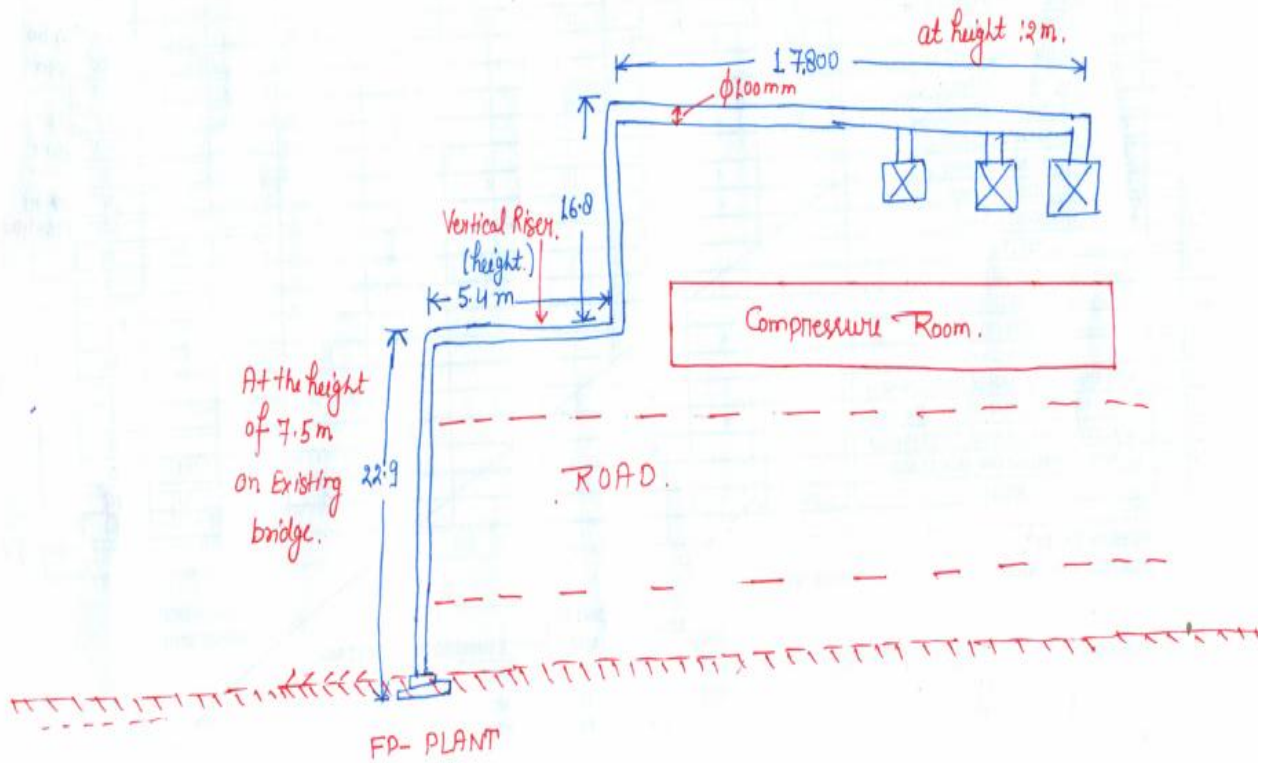 at height :2m.
17.800
ϕ100mm
Vertical Riser.
(height.)
16.8
5.4 m
Compressure Room.
At the height
of 7.5m
on Existing
bridge.
22.9
ROAD.
FP- PLANT